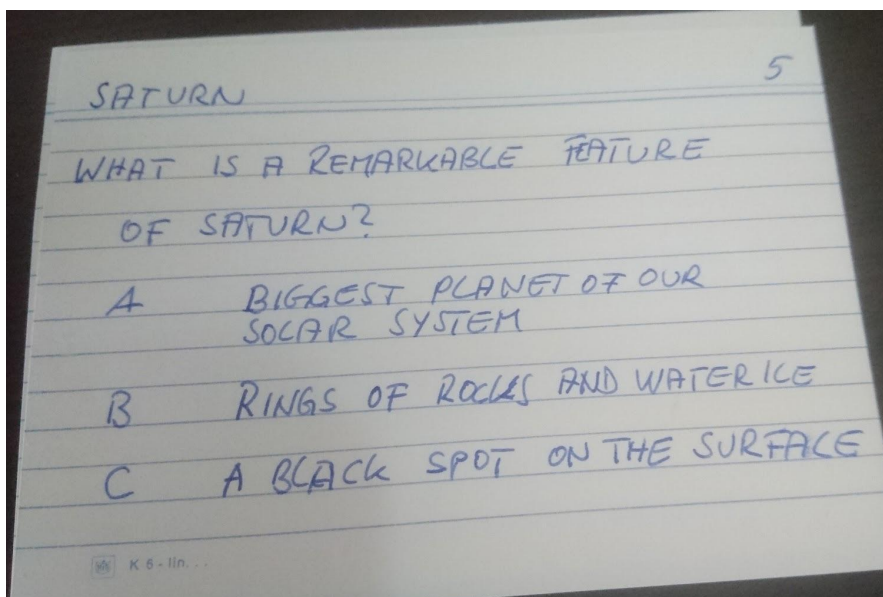 SATURN 5
WHAT IS A REMARKABLE FEATURE
OF SATURN?
A BIGGEST PLANET OF OUR
SOLAR SYSTEM
B RINGS OF ROCKS AND WATER ICE
C A BLACK SPOT ON THE SURFACE
K 6 - lin. . .